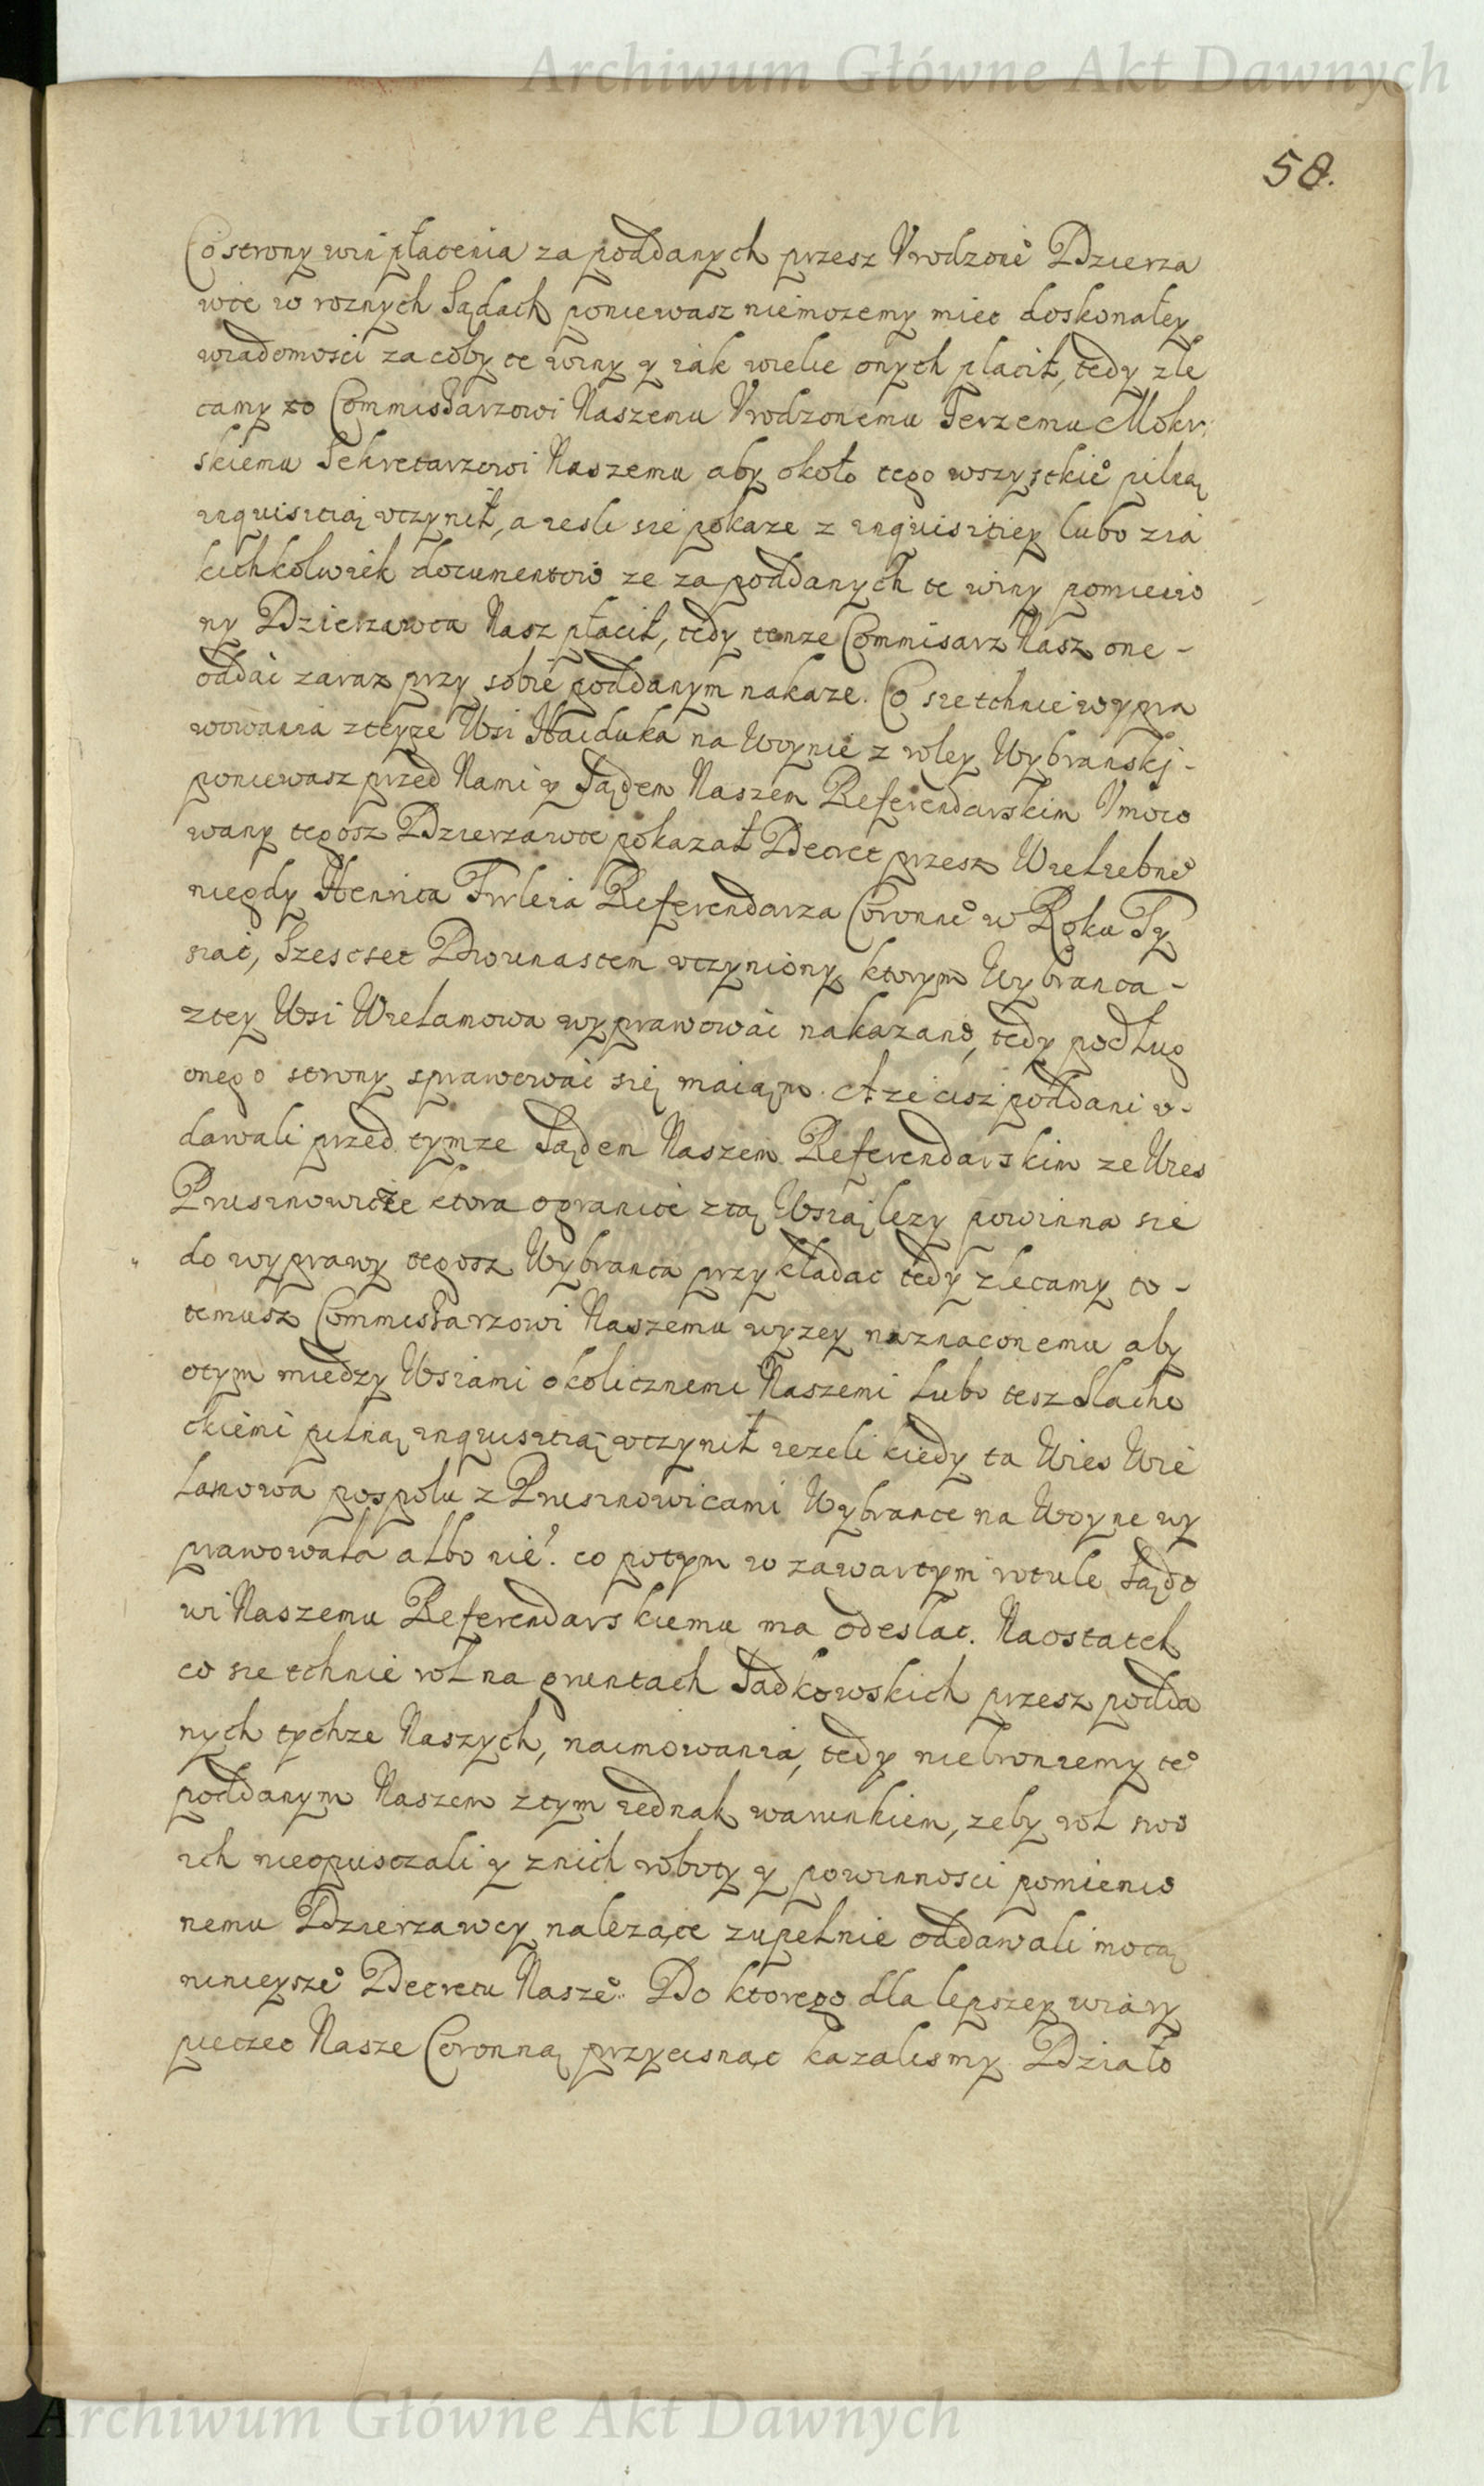 Archiwum Główne Akt Dawnych
58.
Co strony win płacenia za poddanych przesz Vrodzone° Dzierza
wce w roznych Sądach poniewasz niemozemy miec doskonałey
wiadomosci za coby te winy y iak wiele onych płacił, tedy zle
camy to Commissarzowi Naszemu Vrodzonemu Jerzemu Mokr:
skiemu Sekretarzowi Naszemu aby około tego wszystkie° pilną
inquisitią vczynił, a iesli sie pokaze z inquisitiey lubo z ia
kichkolwiek documentow ze za poddanych te winy pomienio
ny Dzierzawca Nasz płacił, tedy tenze Commisarz Nasz one -
oddac zaraz przy sobie poddanym nakaze. Co sie tchnie wypra
wowania z teyze Wsi Haiduka na Woynie z roley Wybranskj -
poniewasz przed Nami y Sądem Naszem Referendarskim Vmoco
wany tegosz Dzierzawce pokazał Decret przesz Wielebne°
niegdy Henrica Firleia Referendarza Coronne° w Roku Ty
siąc, Szescset Dwunastem vczyniony ktorym Wybranca -
z tey Wsi Wielamowa wyprawowac nakazano, tedy podług
onego strony sprawowac się maią. A ze cisz poddani v-
dawali przed tymze Sądem Naszem Referendarskim ze Wies
Prusinowice ktora o granice z tą Wsią lezy powinna sie
do wyprawy tegosz Wybranca przykładac tedy zlecamy to -
temusz Commissarzowi Naszemu wyzey naznaconemu aby
o tym między Wsiami okolicznemi Naszemi lubo tesz Slache
ckiemi pilną inquisitią vczynił iezeli kiedy ta Wies Wie
lamowa pospołu z Prusinowicami Wybrance na Woyne wy
prawowała albo nie? co potym w zawartym rotule Sądo
wi Naszemu Referendarskiemu ma odeslac. Na ostatek
co sie tchnie rol na gruntach Sadkowskich przesz podda
nych tychze Naszych, naimowania, tedy nie broniemy te°
poddanym Naszem z tym iednak warunkiem, zeby rol swo
ich nieopusczali y z nich roboty y powinnosci pomienio
nemu Dzierzawcy nalezące zupełnie oddawali mocą
ninieysze° Decretu Nasze°. Do ktorego dla lepszey wiary
pieczec Nasze Coronną przycisnąc kazalismy. Działo
Archiwum Główne Akt Dawnych